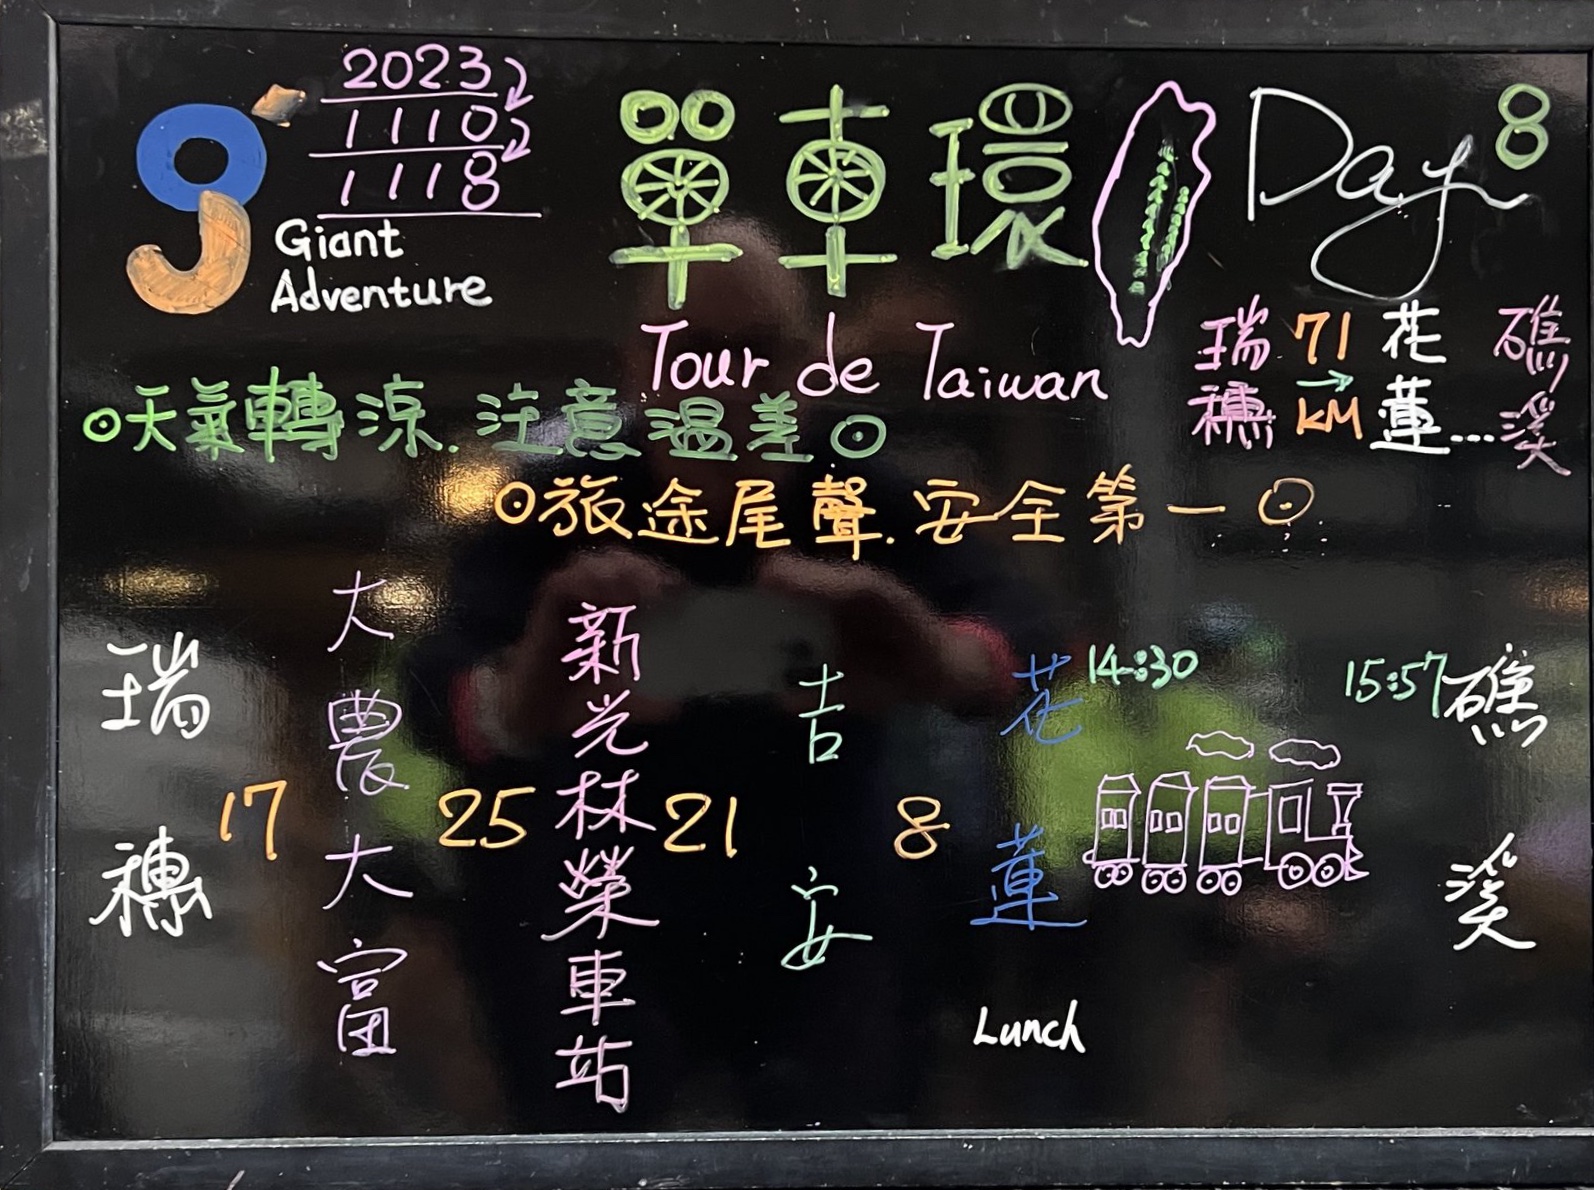 2023
1110
1118
Giant
Adventure
單車環 Day 8
Tour de Taiwan
瑞穗 71 KM → 花蓮...礁溪
⊙天氣轉涼.注意溫差⊙
⊙旅途尾聲.安全第一⊙
瑞穗
17
大農大富
25
新光林榮車站
21
吉安
8
花蓮
14:30
15:57
礁溪
Lunch